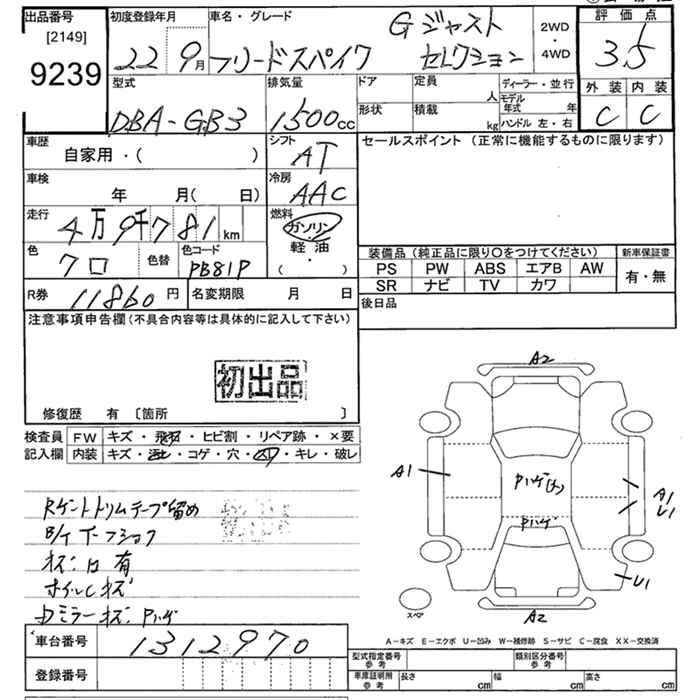 出品番号
[2149]
9239
初度登録年月
22 9月
車名・グレード
Gジャスト
フリードスパイク セレクション
2WD
・
4WD
評価点
3.5
外装 内装
C C
型式
DBA-GB3
排気量
1500cc
ドア
定員
人
形状
積載
kg
ディーラー・並行
モデル年式 年
ハンドル 左・右
車歴
自家用・( )
シフト
AT
車検
年 月( 日)
冷房
AAC
走行
4万9千781km
燃料
ガソリン
・
軽油
( ・ )
色
クロ
色替
色コード
PB81P
R券 11860円
名変期限 月 日
セールスポイント(正常に機能するものに限ります)
装備品(純正品に限り〇をつけてください)
新車保証書
PS PW ABS エアB AW
有・無
SR ナビ TV カワ
後日品
注意事項申告欄(不具合内容等は具体的に記入して下さい)
初出品
修復歴 有 〔箇所 〕
検査員
記入欄
FW キズ・飛石・ヒビ割・リペア跡・×要
内装 キズ・汚れ・コゲ・穴・凹・キレ・破レ
Rゲートトリムテープ留め
キズ凹有
ホイルCキズ
ドミラーキズPハゲ
A2
A1
Pハゲ(大)
Pハゲ
A1
U1
U1
スペア
A2
A-キズ E-エクボ U-凹み W-補修跡 S-サビ C-腐食 XX-交換済
車台番号 1312970
登録番号
型式指定番号
参考
類別区分番号
参考
車庫証明用
参考
長さ cm
幅 cm
高さ cm